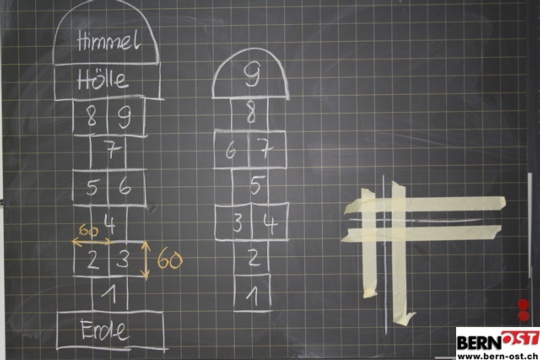 Himmel
Hölle
8 9
7
5 6
4
60
2 3
60
1
Erde
9
8
6 7
5
3 4
2
1
BERNOST
www.bern-ost.ch